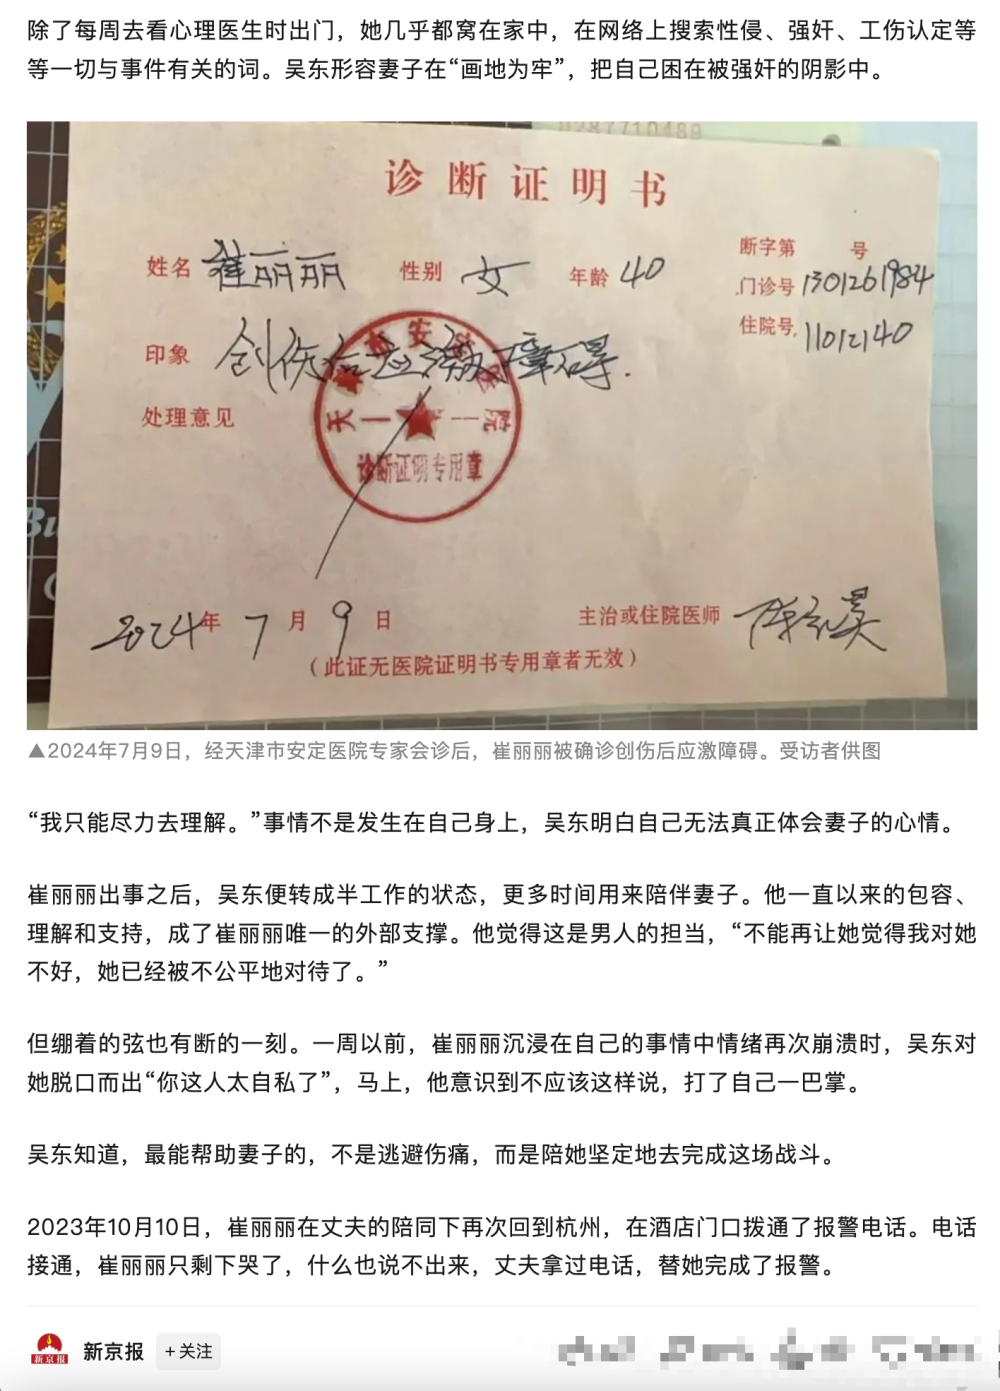 除了每周去看心理医生时出门，她几乎都窝在家中，在网络上搜索性侵、强奸、工伤认定等
等一切与事件有关的词。吴东形容妻子在“画地为牢”，把自己困在被强奸的阴影中。
0287710489
诊断证明书
断字第 号
姓名 崔丽丽 性别 女 年龄 40
门诊号 1301261984
住院号 11012140
印象 创伤后应激障碍.
处理意见
诊断证明专用章
2024年 7月 9日
主治或住院医师
（此证无医院证明书专用章者无效）
▲2024年7月9日，经天津市安定医院专家会诊后，崔丽丽被确诊创伤后应激障碍。受访者供图
“我只能尽力去理解。”事情不是发生在自己身上，吴东明白自己无法真正体会妻子的心情。
崔丽丽出事之后，吴东便转成半工作的状态，更多时间用来陪伴妻子。他一直以来的包容、
理解和支持，成了崔丽丽唯一的外部支撑。他觉得这是男人的担当，“不能再让她觉得我对她
不好，她已经被不公平地对待了。”
但绷着的弦也有断的一刻。一周以前，崔丽丽沉浸在自己的事情中情绪再次崩溃时，吴东对
她脱口而出“你这人太自私了”，马上，他意识到不应该这样说，打了自己一巴掌。
吴东知道，最能帮助妻子的，不是逃避伤痛，而是陪她坚定地去完成这场战斗。
2023年10月10日，崔丽丽在丈夫的陪同下再次回到杭州，在酒店门口拨通了报警电话。电话
接通，崔丽丽只剩下哭了，什么也说不出来，丈夫拿过电话，替她完成了报警。
新京报 新京报 +关注